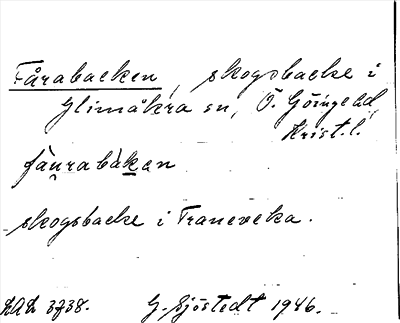 Fårabacken, skogsbacke i
Glimåkra sn, Ö. Göinge hd,
Krist. l.
fàu̯rabàḵan
skogsbacke i Traneveka.
LAL 3738. G. Sjöstedt 1946.